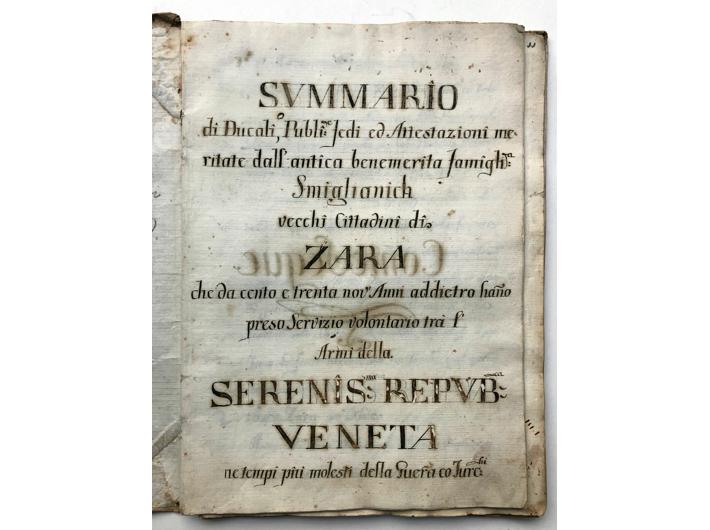 SVMMARIO
di Ducali, Publi:che Fedi ed Attestazioni me-
ritate dall'antica benemerita Famigli:a
Smiglianich
vecchi Cittadini di
ZARA
che da cento e trenta nov'Anni addietro hano
preso Servizio volontario trà l'
Armi della.
SERENIS:ma REPVB:ca
VENETA
ne tempi più molesti della Guera co Turc:hi